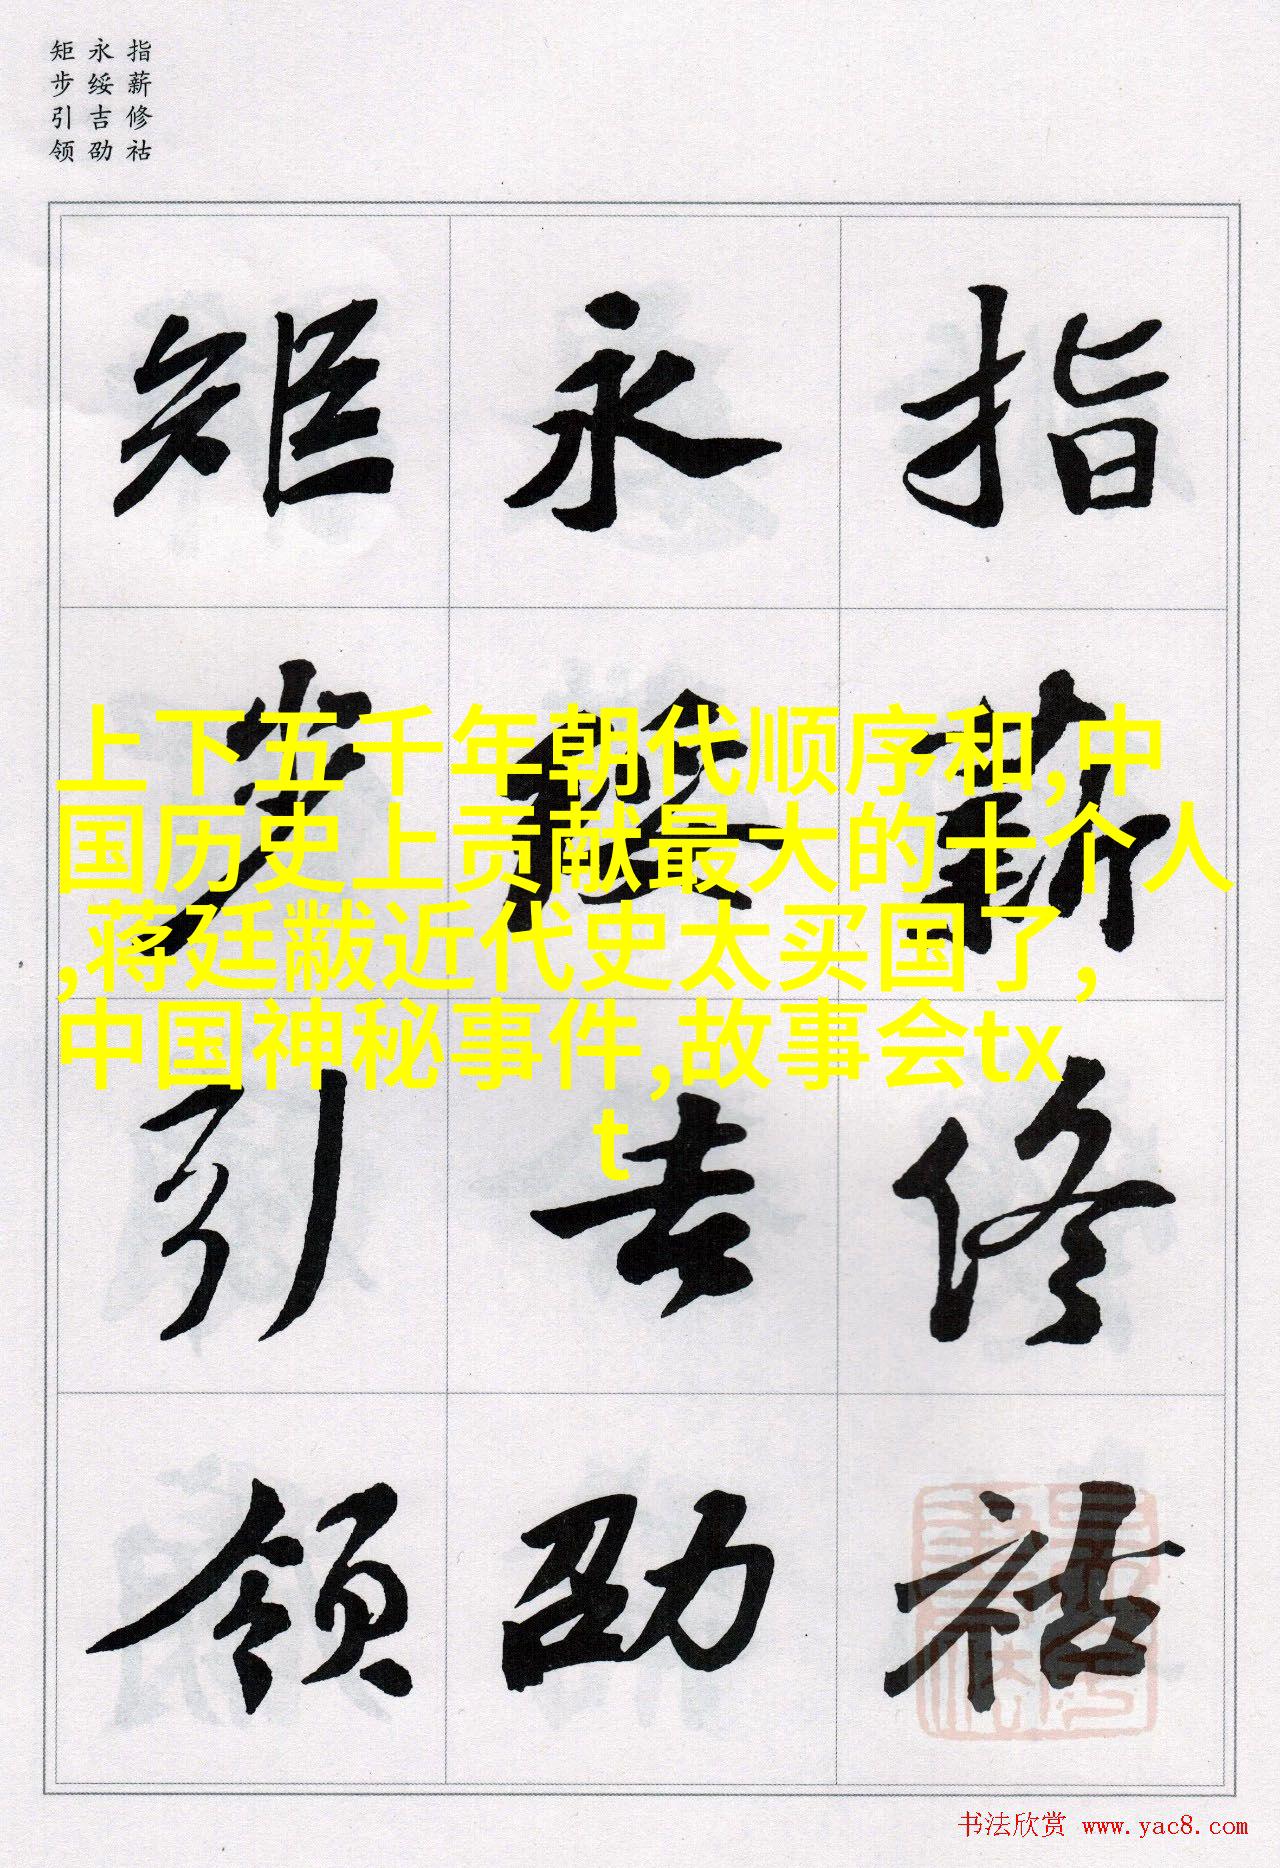 指薪修祜
永绥吉劭
矩步引领
指薪修祜
永绥吉劭
矩步引领
上下五千年朝代顺序和,中
国历史上贡献最大的十个人
,蒋廷黻近代史太买国了,
中国神秘事件,故事会tx
t
书法欣赏 www.yac8.com